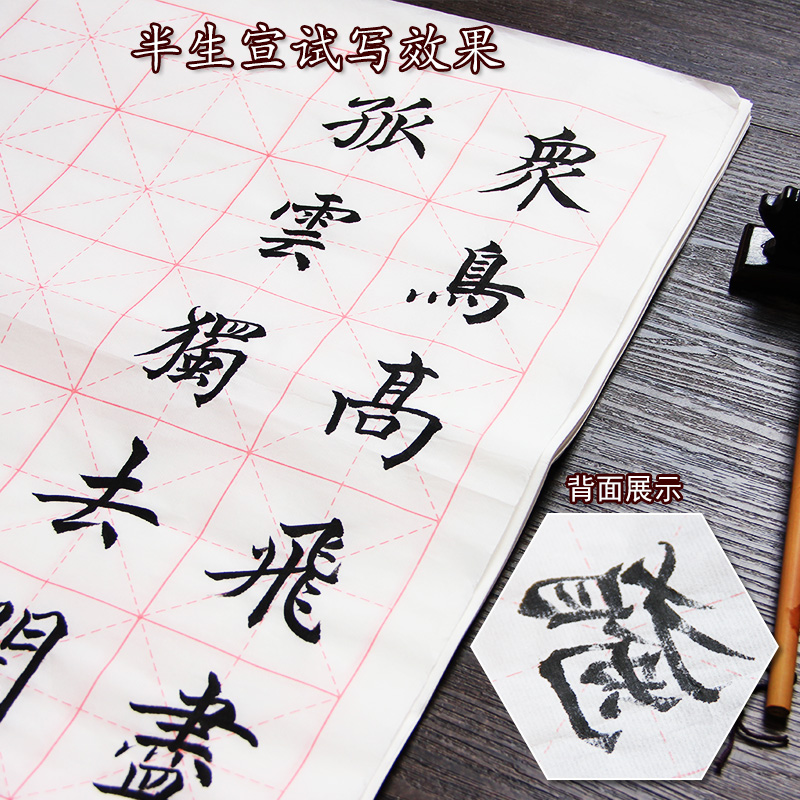 半生宣试写效果
衆鳥高飛盡
孤雲獨去閒
背面展示
獨